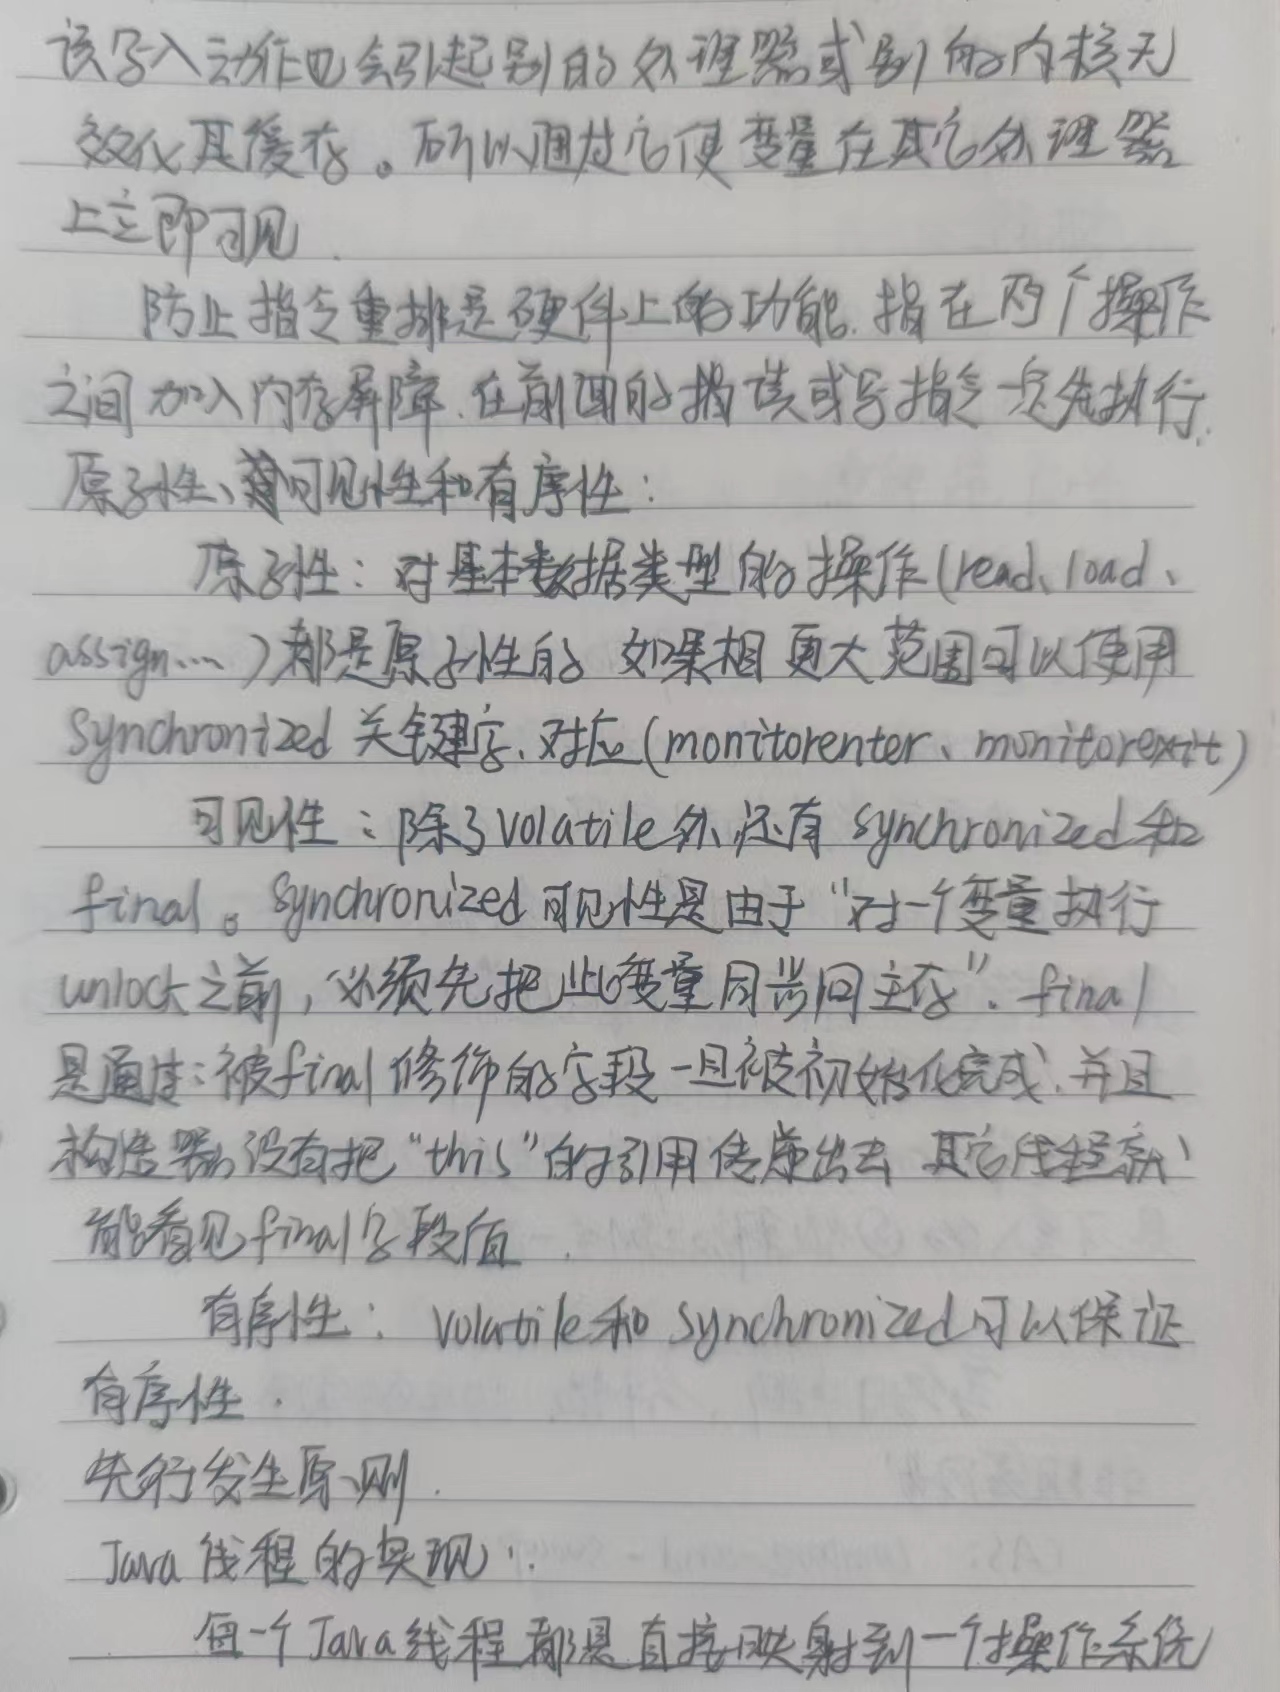 该写入动作也会引起别的处理器或别的内核无
效化其缓存。所以通过它使变量在其它处理器
上立即可见.
防止指令重排是硬件上的功能.指在两个操作
之间加入内存屏障.在前面的读或写指令一定先执行.
原子性、可见性和有序性:
原子性:对基本数据类型的操作(read、load、
assign...)都是原子性的 如果相更大范围可以使用
Synchronized 关键字.对应(monitorenter、monitorexit)
可见性:除了volatile外,还有 synchronized 和
final。Synchronized 可见性是由于“对一个变量执行
unlock之前,必须先把此变量同步回主存”.final
是通过:被final修饰的字段一旦被初始化完成.并且
构造器没有把“this”的引用传递出去 其它线程就
能看见final字段值.
有序性: volatile和 synchronized可以保证
有序性.
先行发生原则.
Java 线程的实现:
每一个Java线程都是直接映射到一个操作系统